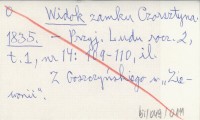 Widok zamku Czorsztyna
1835. - Przyj. Ludu rocz. 2,
t. 1, nr 14: 109-110, il.
Z Goszczyńskiego w "Zie-
wonii".